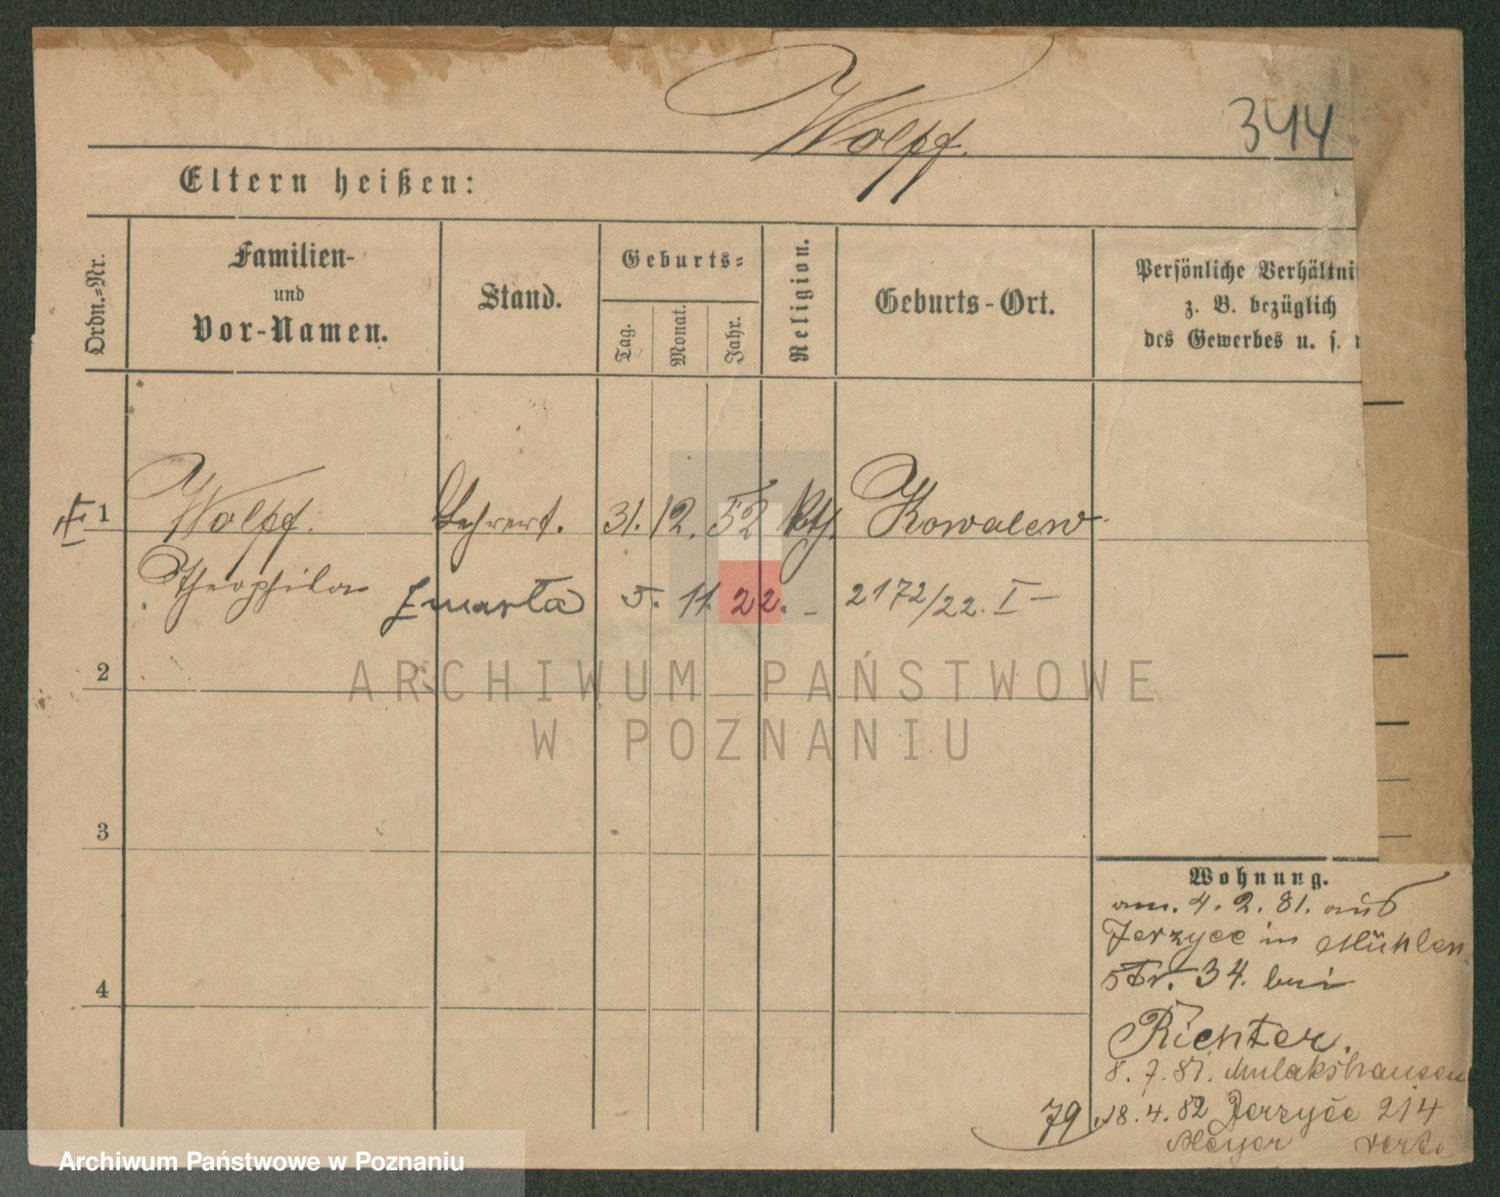 Wolff.
344
Eltern heißen:
Ordn.-Nr.
Familien-
und
Vor-Namen.
Stand.
Geburts-
Tag.
Monat.
Jahr.
Religion.
Geburts-Ort.
Persönliche Verhältni
z. B. bezüglich
des Gewerbes u. s.
1 Wolff. 31. 12. 52 kth. Kowalew
Theophila zmarła 5. 11. 22. - 2172/22. I -
2
ARCHIWUM PAŃSTWOWE
W POZNANIU
3
4
Wohnung.
am. 4. 2. 81. aus
Jerzyce in Mühlen
str. 34. bei
Richter.
8. 7. 81. Mulakshausen
79 18. 4. 82 Jerzyce 214
Meyer verte
Archiwum Państwowe w Poznaniu